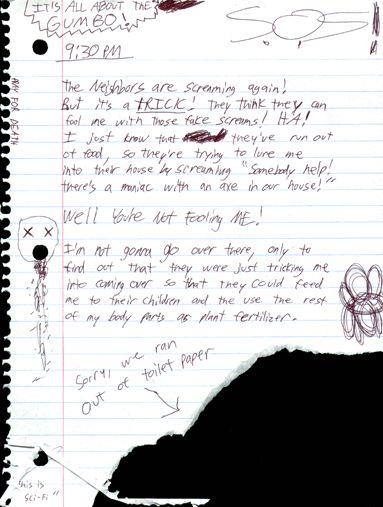 IT'S ALL ABOUT THE
GUMBO!
SOS
9:30 PM
PRAY FOR DEATH
the Neighbors are screaming again!
But it's a TRICK! They think they can
fool me with those fake screams! HA!
I just know that they've run out
of food, so they're trying to lure me
into their house by screaming "Somebody help!
there's a maniac with an axe in our house!"
Well You're Not Fooling ME!
I'm not gonna go over there, only to
find out that they were just tricking me
into coming over so that they could feed
me to their children and the use the rest
of my body parts as plant fertilizer.
Sorry, we ran
out of toilet paper
"this is
Sci-Fi"